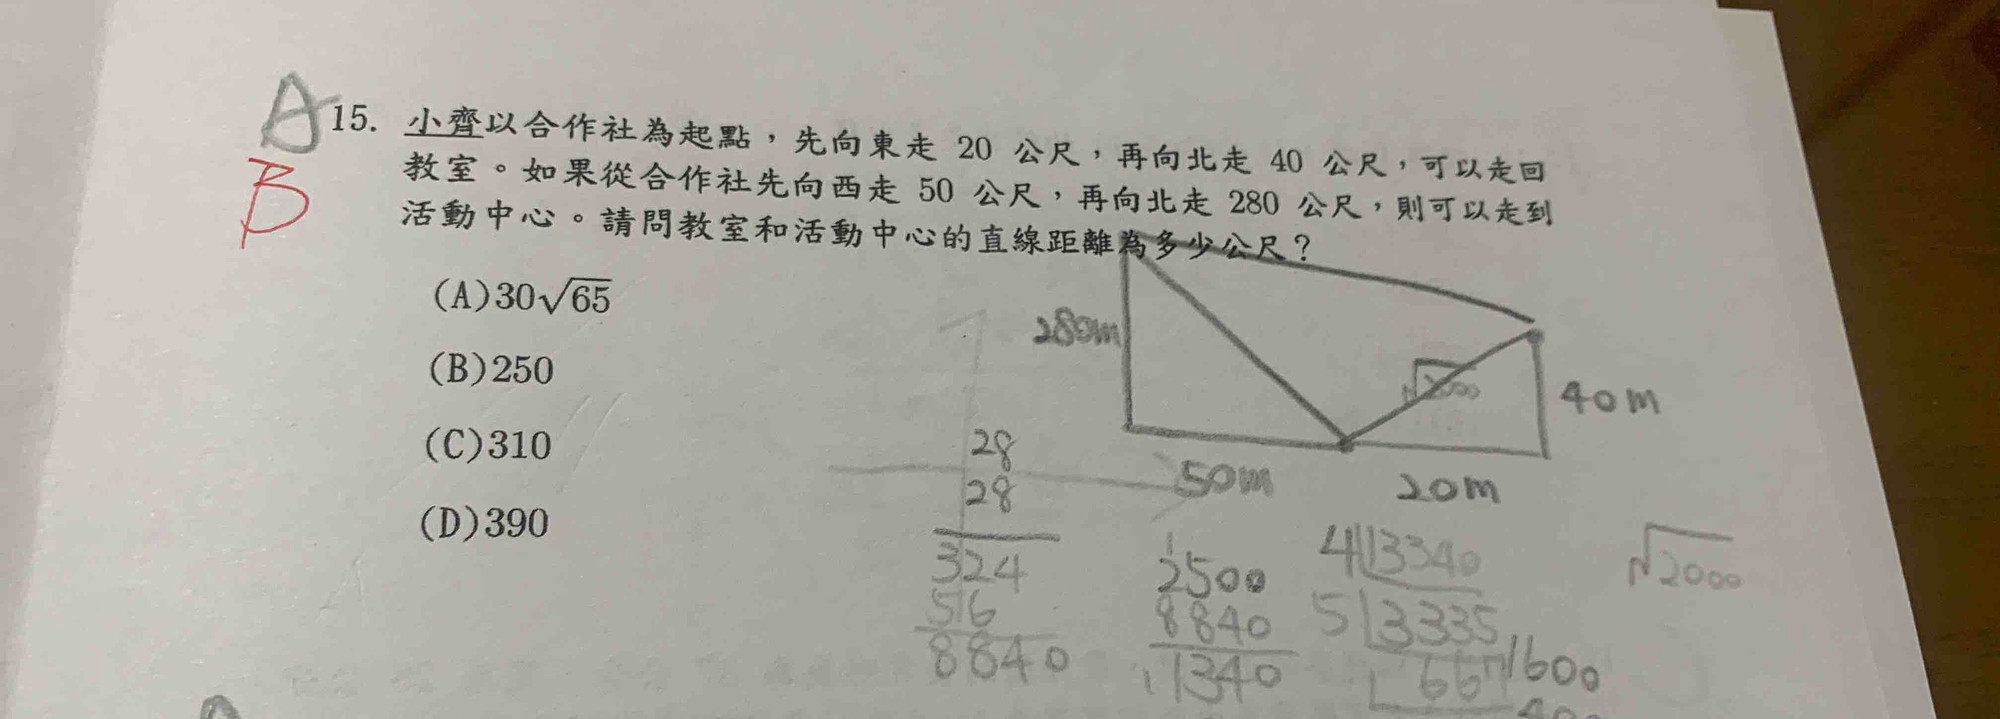 A
15. 小齊以合作社為起點，先向東走 20 公尺，再向北走 40 公尺，可以走回
B
教室。如果從合作社先向西走 50 公尺，再向北走 280 公尺，則可以走到
活動中心。請問教室和活動中心的直線距離為多少公尺？
(A)30√65
(B)250
(C)310
(D)390
280m
√2000
40m
50m
20m
28
28
324
516
8840
2500
8840
11340
4 3340
5 3335
667
1600
√2000